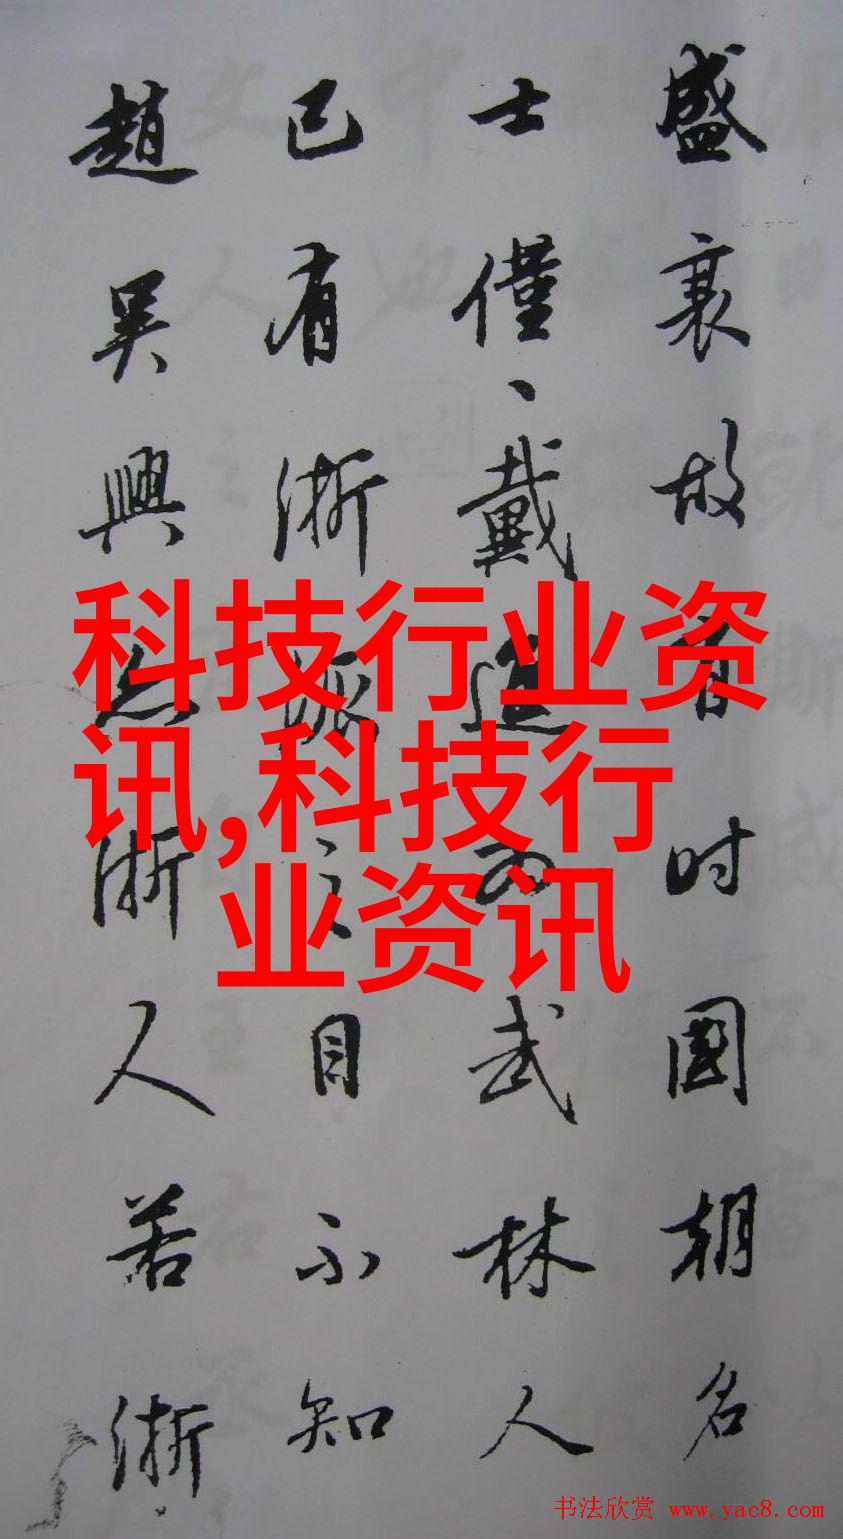 盛衰故有时國朝名
士僅、戴進為武林人
已有浙派之目不知
趙吳興亦浙人若浙
科技行业资
讯,科技行
业资讯
书法欣赏 www.yac8.com